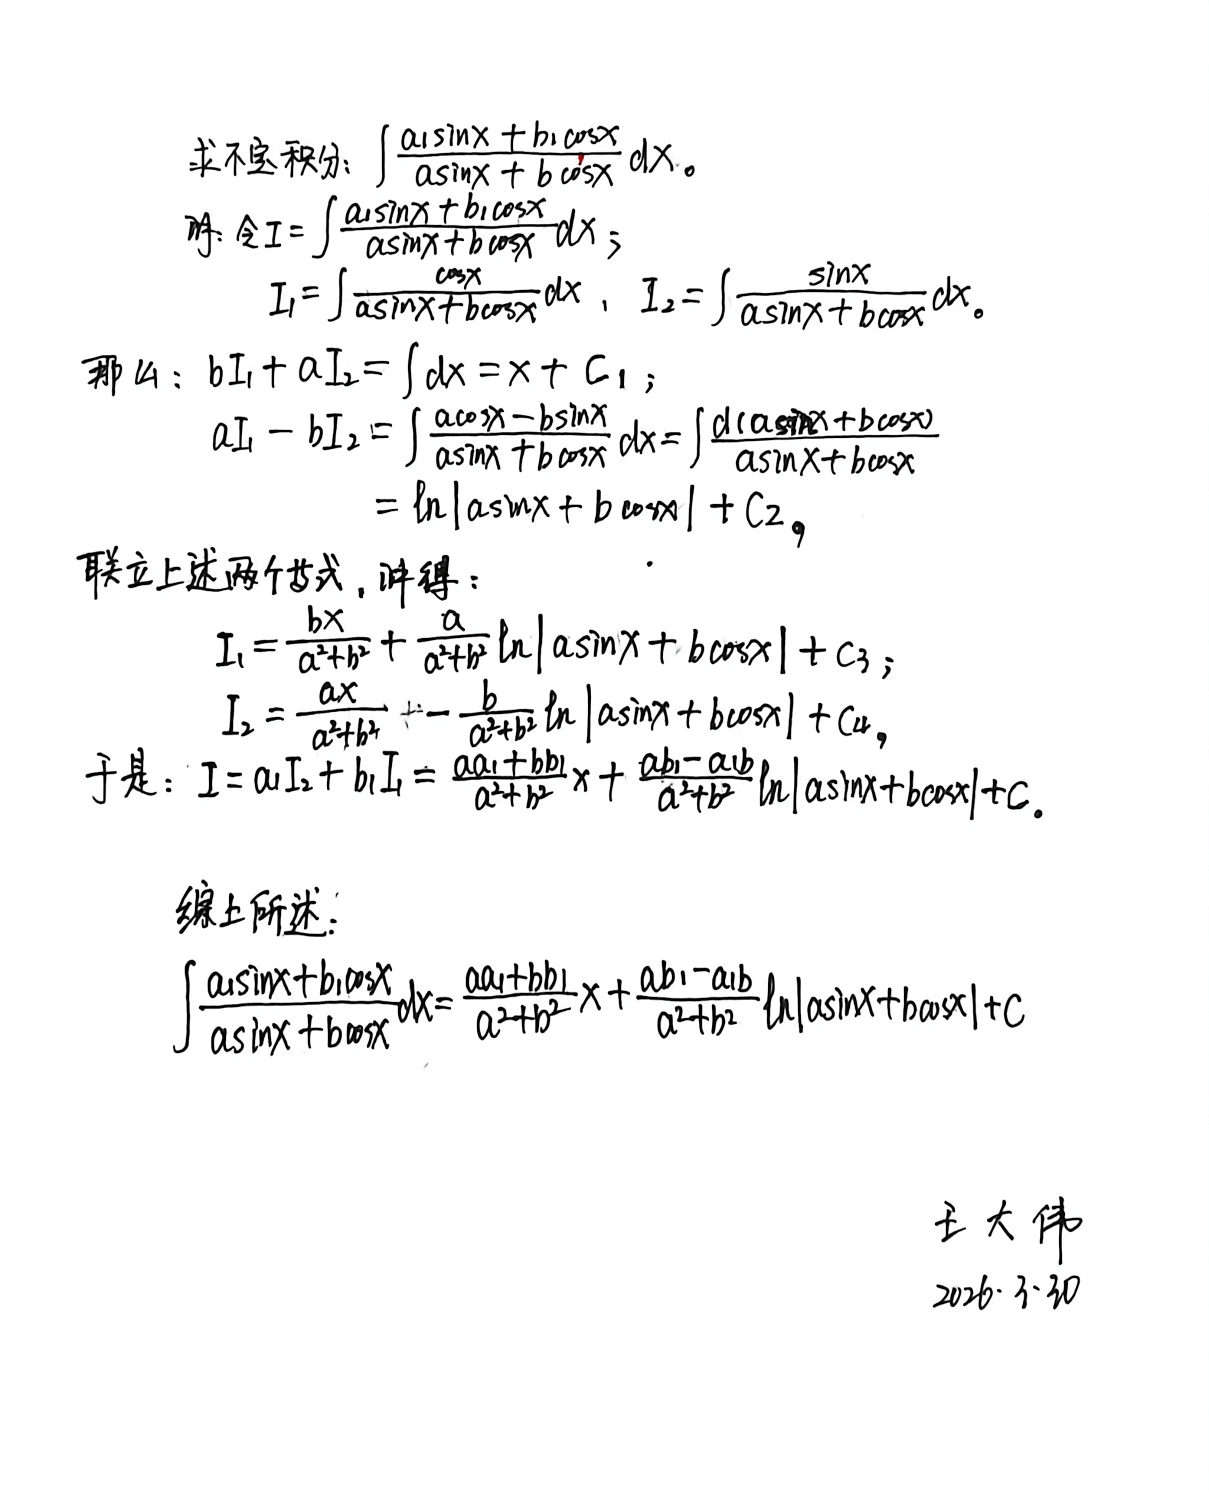 求不定积分: ∫ (a₁sinx + b₁cosx)/(asinx + bcosx) dx。
解: 令 I = ∫ (a₁sinx + b₁cosx)/(asinx + bcosx) dx;
I₁ = ∫ cosx/(asinx + bcosx) dx, I₂ = ∫ sinx/(asinx + bcosx) dx。
那么: bI₁ + aI₂ = ∫dx = x + C₁;
aI₁ - bI₂ = ∫ (acosx - bsinx)/(asinx + bcosx) dx = ∫ d(asinx + bcosx)/(asinx + bcosx)
= ln|asinx + bcosx| + C₂,
联立上述两个等式, 解得:
I₁ = bx/(a²+b²) + a/(a²+b²) ln|asinx + bcosx| + C₃;
I₂ = ax/(a²+b²) - b/(a²+b²) ln|asinx + bcosx| + C₄,
于是: I = a₁I₂ + b₁I₁ = (aa₁+bb₁)/(a²+b²) x + (ab₁-a₁b)/(a²+b²) ln|asinx+bcosx| + C。
综上所述:
∫ (a₁sinx+b₁cosx)/(asinx+bcosx) dx = (aa₁+bb₁)/(a²+b²) x + (ab₁-a₁b)/(a²+b²) ln|asinx+bcosx| + C
王大伟
2026.3.30